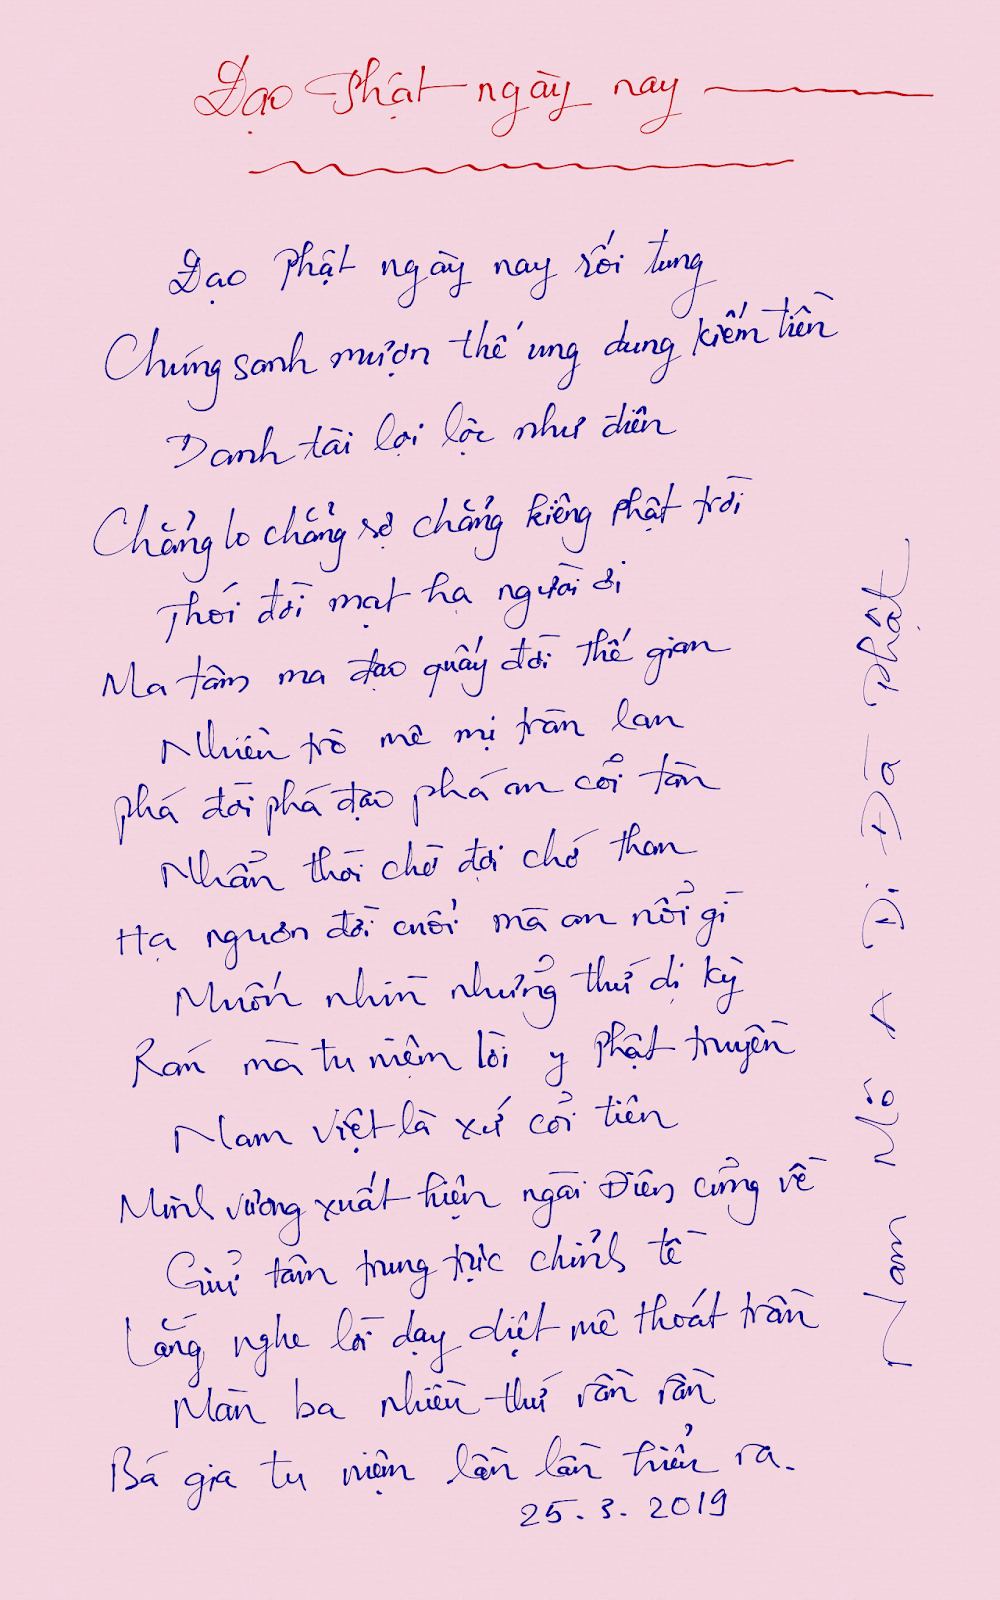 Đạo Phật ngày nay
Đạo Phật ngày nay rối tung
Chúng sanh mượn thế ung dung kiếm tiền
Danh tài lợi lộc như điên
Chẳng lo chẳng sợ chẳng kiêng phật trời
Thói đời mạt hạ người ơi
Ma tâm ma đạo quấy đời thế gian
Nhiều trò mê mị tràn lan
phá đời phá đạo phá an cỏi tần
Nhẩn thời chờ đợi chớ than
Hạ nguơn đời cuối mà an nổi gì
Muốn nhìn nhửng thứ dị kỳ
Rán mà tu niệm lời y Phật truyền
Nam Việt là xứ cỏi tiên
Minh vương xuất hiện ngài Điên củng về
Giử tâm trung trực chỉnh tề
Lắng nghe lời dạy diệt mê thoát trần
Màn ba nhiều thứ rần rần
Bá gia tu niệm lần lần hiển ra.
25.3.2019
Nam Mô A Di Đà Phật